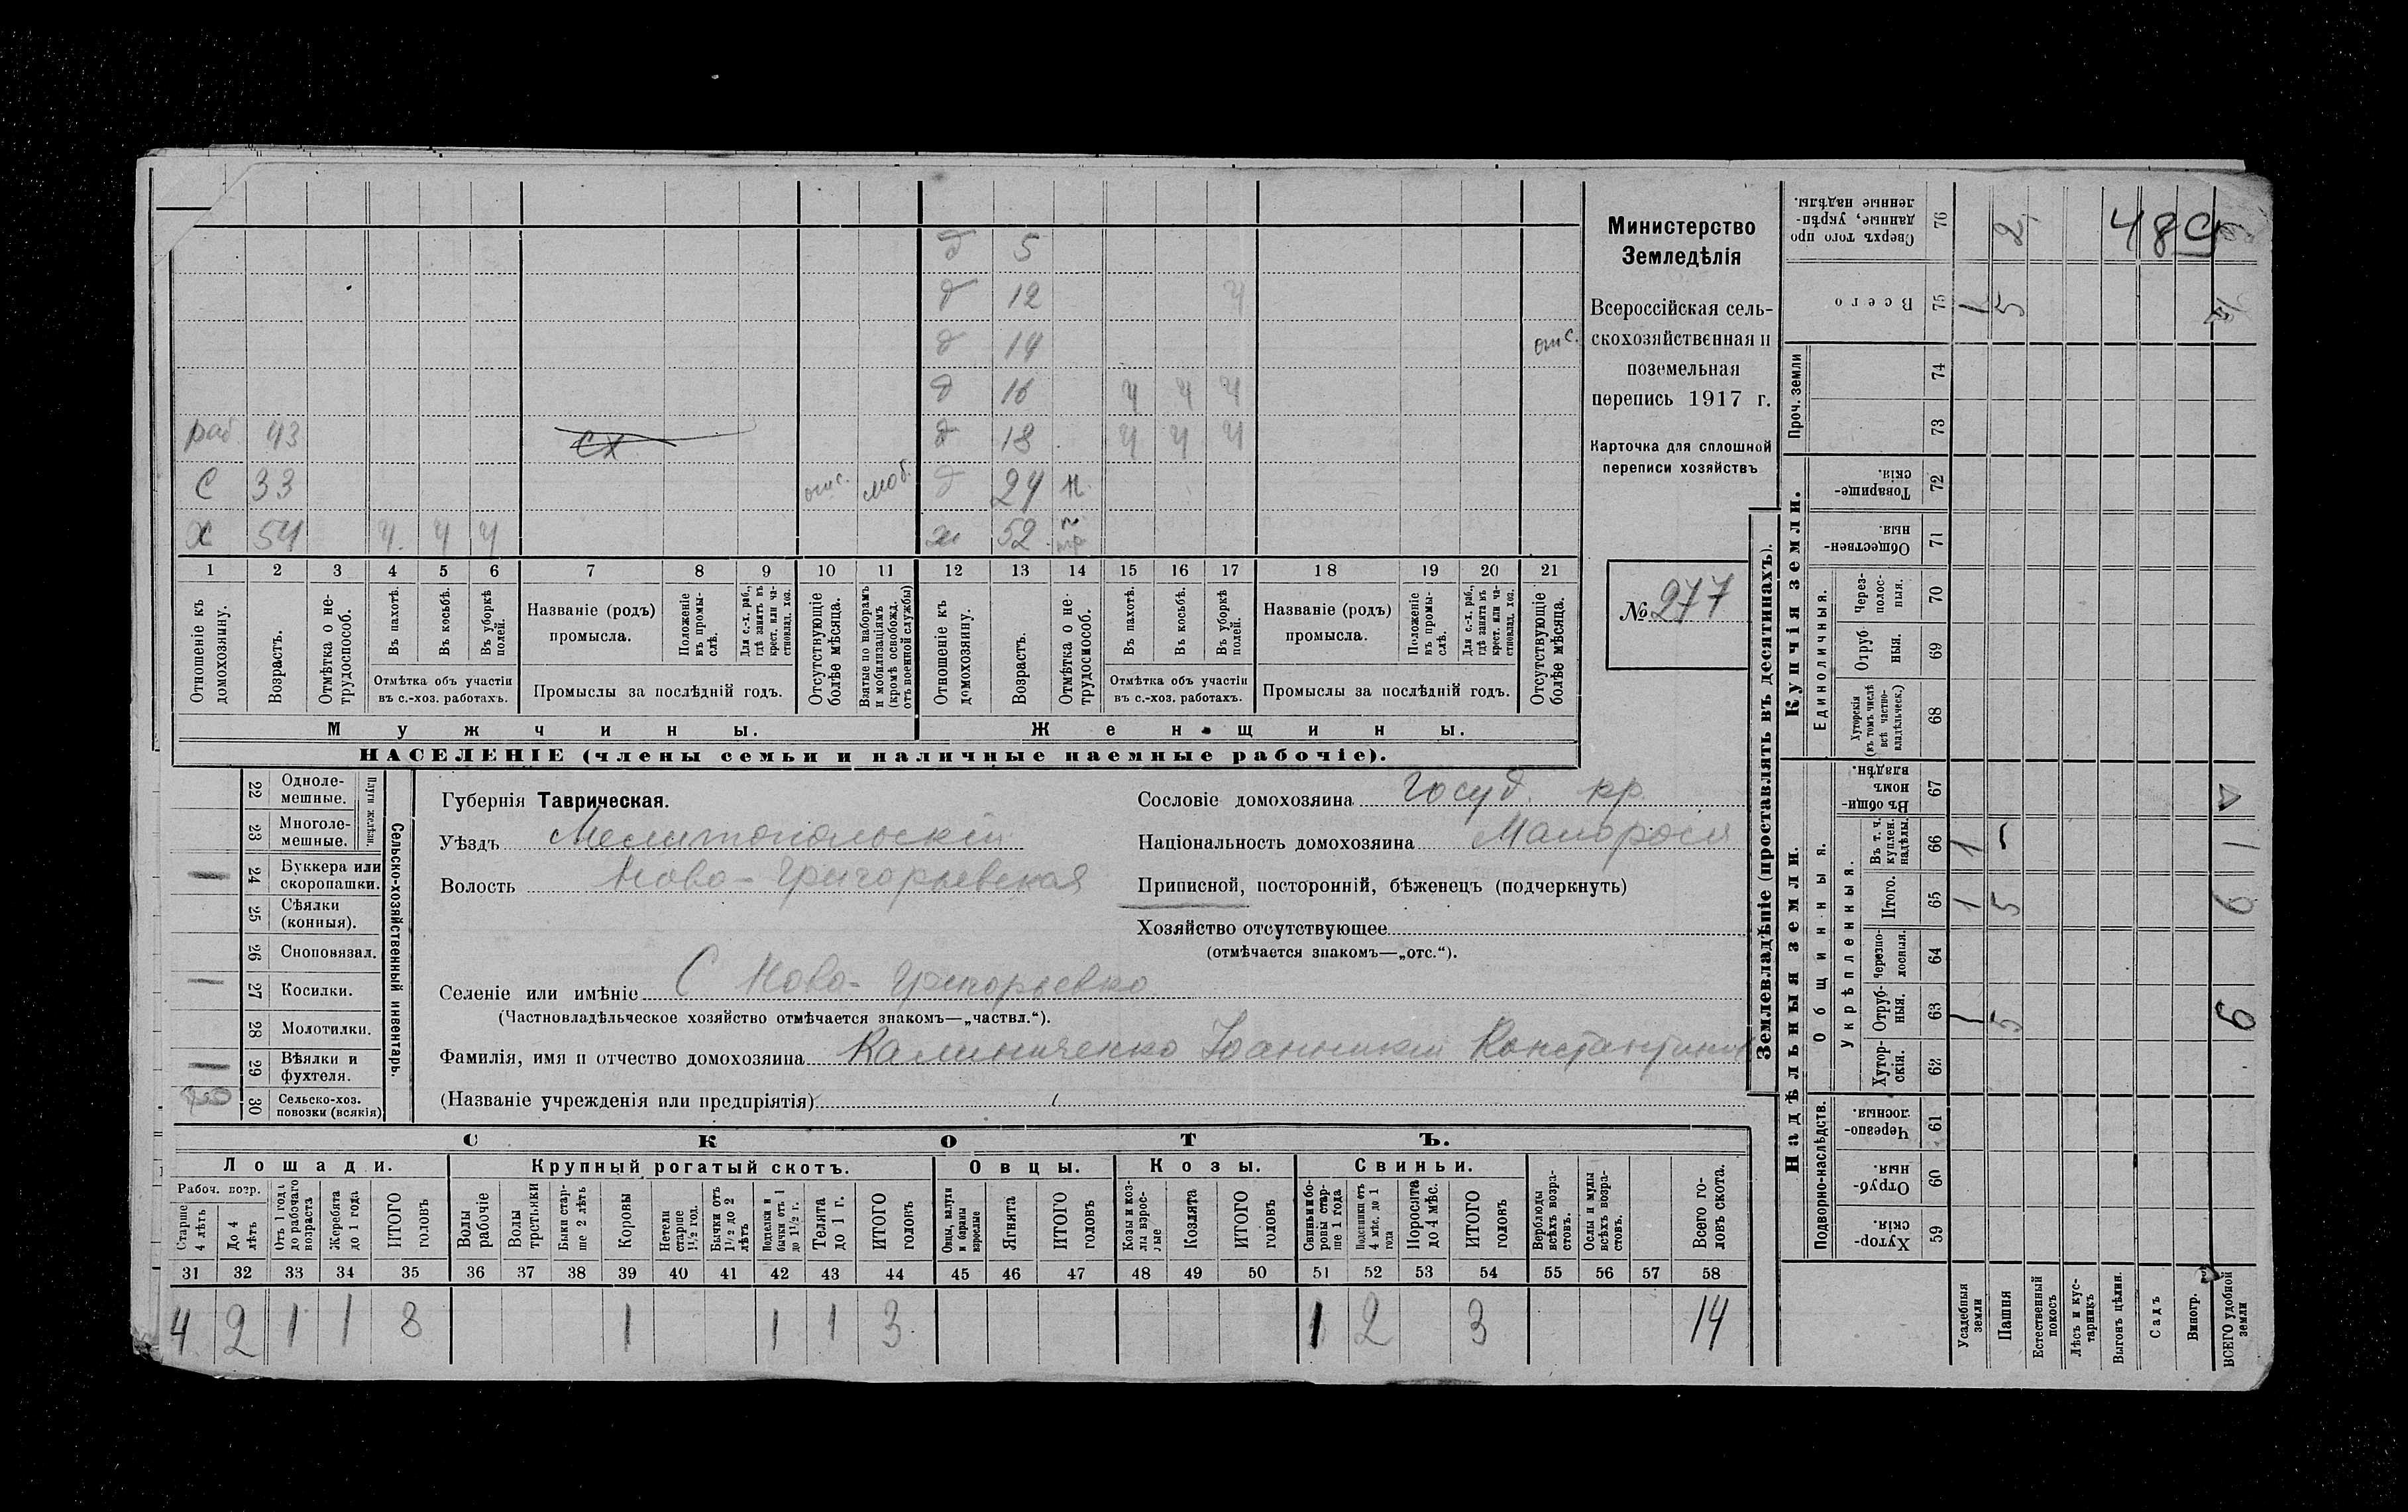 д 5
д 12 ч
д 14 отс.
д 16 ч ч ч
раб 43 сх д 18 ч ч ч
С 33 отс. моб. д 24 н.
х 54 ч ч ч ж 52
1 2 3 4 5 6 7 8 9 10 11 12 13 14 15 16 17 18 19 20 21
Отношеніе къ домохозяину.
Возрастъ.
Отмѣтка о нетрудоспособ.
Въ пахотѣ.
Въ косьбѣ.
Въ уборкѣ полей.
Отмѣтка объ участіи въ с.-хоз. работахъ.
Названіе (родъ) промысла.
Положеніе въ промыслѣ.
Для с.-х. раб., гдѣ занятъ въ крест. или частновлад. хоз.
Промыслы за послѣдній годъ.
Отсутствующіе болѣе мѣсяца.
Взятые по наборамъ и мобилизаціямъ (кромѣ освобожд. отъ военной службы)
Отношеніе къ домохозяину.
Возрастъ.
Отмѣтка о нетрудоспособ.
Въ пахотѣ.
Въ косьбѣ.
Въ уборкѣ полей.
Отмѣтка объ участіи въ с.-хоз. работахъ.
Названіе (родъ) промысла.
Положеніе въ промыслѣ.
Для с.-х. раб., гдѣ занята въ крест. или частновлад. хоз.
Промыслы за послѣдній годъ.
Отсутствующіе болѣе мѣсяца.
Мужчины.
Женщины.
НАСЕЛЕНІЕ (члены семьи и наличные наемные рабочіе).
Министерство
Земледѣлія
Всероссійская сель-
скохозяйственная и
поземельная
перепись 1917 г.
Карточка для сплошной
переписи хозяйствъ
№ 277
22 Одноле-
мешные.
23 Многоле-
мешные.
Плуги желѣзн.
24 Буккера или
скоропашки.
25 Сѣялки
(конныя).
26 Сноповязал.
27 Косилки.
28 Молотилки.
29 Вѣялки и
фухтеля.
30 Сельско-хоз.
повозки (всякія)
Сельско-хозяйственный инвентарь.
Губернія Таврическая.
Уѣздъ Мелитопольскій
Волость Ново-Григорьевская
Сословіе домохозяина Госуд. кр.
Національность домохозяина Малоросія
Приписной, посторонній, бѣженецъ (подчеркнуть)
Хозяйство отсутствующее
(отмѣчается знакомъ—„отс.“).
Селеніе или имѣніе С Ново-Григорьевко
(Частновладѣльческое хозяйство отмѣчается знакомъ—„частвл.“).
Фамилія, имя и отчество домохозяина Калиниченко Іоанникій
(Названіе учрежденія или предпріятія)
СКОТЪ.
Лошади. Крупный рогатый скотъ. Овцы. Козы. Свиньи.
Рабоч. возр.
Старше 4 лѣтъ
До 4 лѣтъ
Отъ 1 года до рабочаго возраста
Жеребята до 1 года
ИТОГО головъ
Волы рабочіе
Волы третьяки
Быки старше 2 лѣтъ
Коровы
Нетели старше 1 1/2 год.
Бычки отъ 1 1/2 до 2 лѣтъ
бычки отъ 1 до 1 1/2 г.
Телята до 1 г.
ИТОГО головъ
Овцы, валухи и бараны взрослые
Ягнята
ИТОГО головъ
Козы и козлы взрослые
Козлята
ИТОГО головъ
Свиньи и боровы старше 1 года
Подсвинки отъ 4 мѣс. до 1 года
Поросята до 4 мѣс.
ИТОГО головъ
Верблюды всѣхъ возрастовъ.
Ослы и мулы всѣхъ возрастовъ.
Всего головъ скота.
31 32 33 34 35 36 37 38 39 40 41 42 43 44 45 46 47 48 49 50 51 52 53 54 55 56 57 58
4 2 1 1 8 1 1 1 3 1 2 3 14
Землевладѣніе (проставлять въ десятинахъ).
Надѣльныя земли.
Купчія земли.
Проч. земли
Подворно-наслѣдств.
Общинныя.
Укрѣпленныя.
Единоличныя.
Сверхъ того проданные, укрѣпленные надѣлы. 76 2 48
Всего 75 1 5
74
73
Товарищескія 72
Общественныя. 71
Черезполосныя. 70
Отрубныя. 69
Хуторскія (въ томъ числѣ всѣ частновладѣльческ.) 68
Въ общинномъ владѣн. 67
Въ т. ч. куплен. надѣлы. 66 1
Итого. 65 1 5 6
Черезполосныя. 64
Отрубныя. 63 1 5 6
Хуторскія. 62
Черезполосныя. 61
Отрубныя. 60
Хуторскія. 59
Усадебныя земли
Пашня
Естественный покосъ
Лѣсъ и кустарникъ
Выгонъ цѣлин.
Садъ
Виногр.
ВСЕГО удобной земли